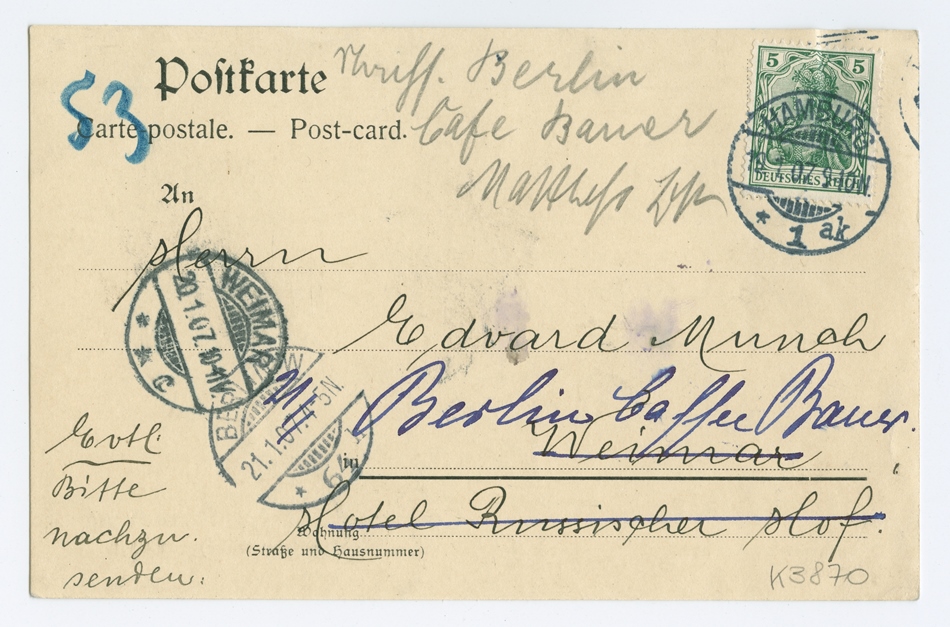 53
Postkarte
Berlin
Carte-postale. — Post-card.
Cafe Bauer
5 5
DEUTSCHES REICH
HAMBURG
1 ak
An
Herrn
WEIMAR
20.1.07.10-11V.
c
Edvard Munch
BERLIN W
21.1.07.4-5N.
64
Berlin Caffee Bauer.
in
Weimar
Hotel Russischer Hof.
Wohnung
(Straße und Hausnummer)
Evtl.
Bitte
nachzu.
senden:
K3870